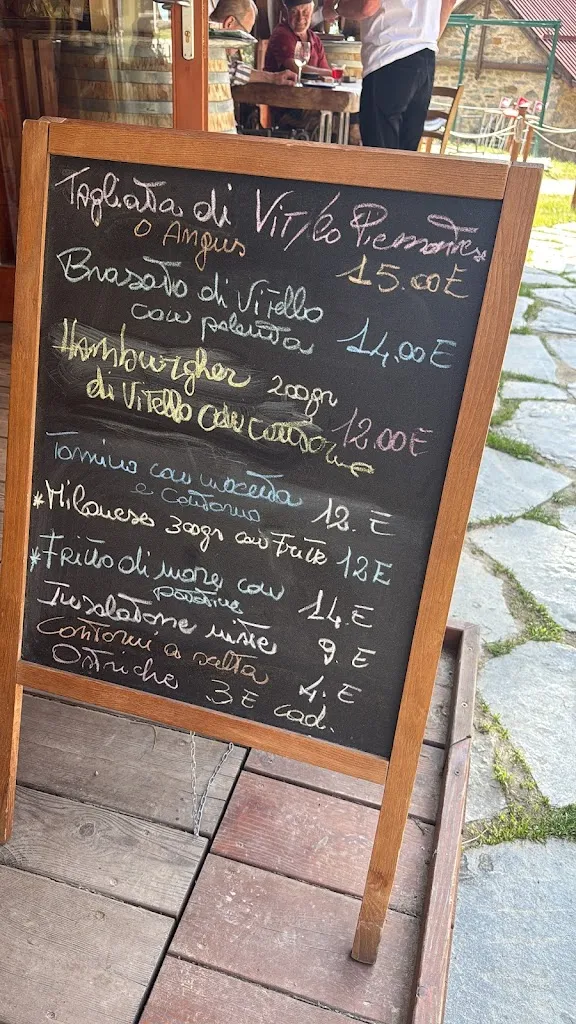 Tagliata di Vitello Piemontese
O Angus 15.00E
Brasato di Vitello
con polenta 14,00E
Hamburgher 200gr
di Vitello con contorno 12.00E
Tomino con
e Contorno 12. E
*Milanese 300gr con Fritte 12E
*Fritto di mare con
patatine 14. E
Insalatone miste 9. E
Contorni a scelta 4. E
Ostriche 3E cad.